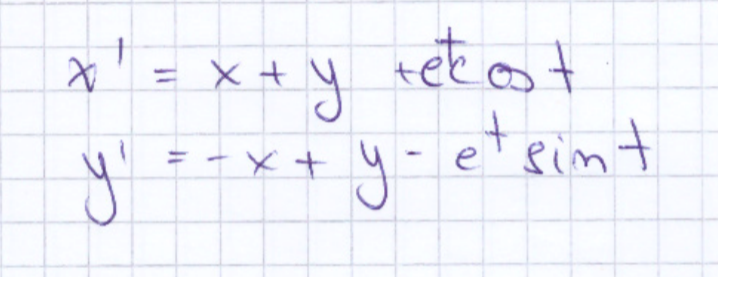 x' = x + y + e^t cos t
y' = -x + y - e^t sin t